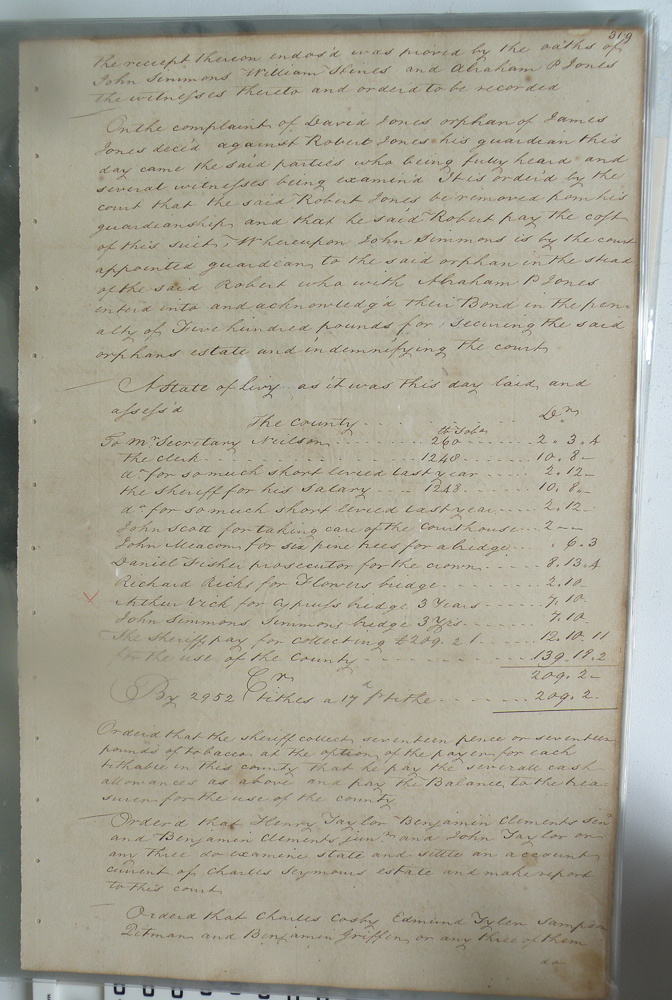 319
the receipt thereon endos'd was proved by the oaths of
John Simmons William Hines and Abraham P Jones
the witnesses thereto and orderd to be recorded
On the complaint of David Jones orphan of James
Jones dec'd against Robert Jones his guardian this
day came the said parties who being fully heard and
several witnesses being examin'd It is order'd by the
court that the said Robert Jones be removed from his
guardianship and that he said Robert pay the cost
of this suit, Whereupon John Simmons is by the court
appointed guardian to the said orphan in the stead
of the said Robert who with Abraham P Jones
enterd into and acknowledg'd their Bond in the pen
alty of Five hundred pounds for securing the said
orphans estate and indemnifying the court
A State of Levy as it was this day laid and
assess'd
The County Dr
lb Tobo
To Mr Secretary Neilson 260 2. 3. 4
the clerk 1248 10. 8 -
do for so much short levied last year 2. 12 -
the sheriff for his salary 1248 10. 8. -
do for so much short levied last year 2. 12 -
John Scott for taking care of the courthouse 2 - -
John Meacom for six pine trees for a bridge . 6. 3
Daniel Fisher prosecutor for the crown 8. 13. 4
Richard Ricks for Flowers bridge 2. 10
Arthur Vick for Cypruss bridge 3 Years 7. 10
John Simmons Simmons bridge 3 Yrs 7. 10
The Sheriff pay for collecting £209. 2 1 12. 10. 11
for the use of the County 139. 18. 2
209. 2 -
Cr
By 2952 tithes a 17d p tithe 209. 2.
Orderd that the sheriff collect seventeen pence or seventeen
pounds of tobacco at the option of the payer for each
tithable in this county that he pay the severall cash
allowances as above and pay the Balance to the trea
surer for the use of the county
Orderd that Henry Taylor Benjamin Clements Senr
and Benjamin Clements junr and John Taylor or
any three do examine state and settle an account
current of Charles Seymours estate and make report
to this court
Orderd that Charles Cosby Edmund Tyler Sampson
Pitman and Benjamin Griffin or any three of them
do